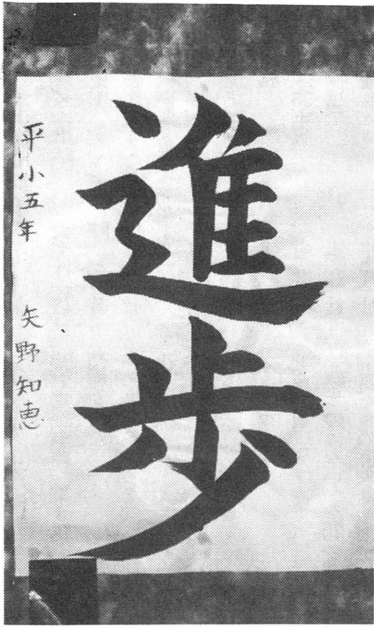 進歩
平小五年 矢野知恵